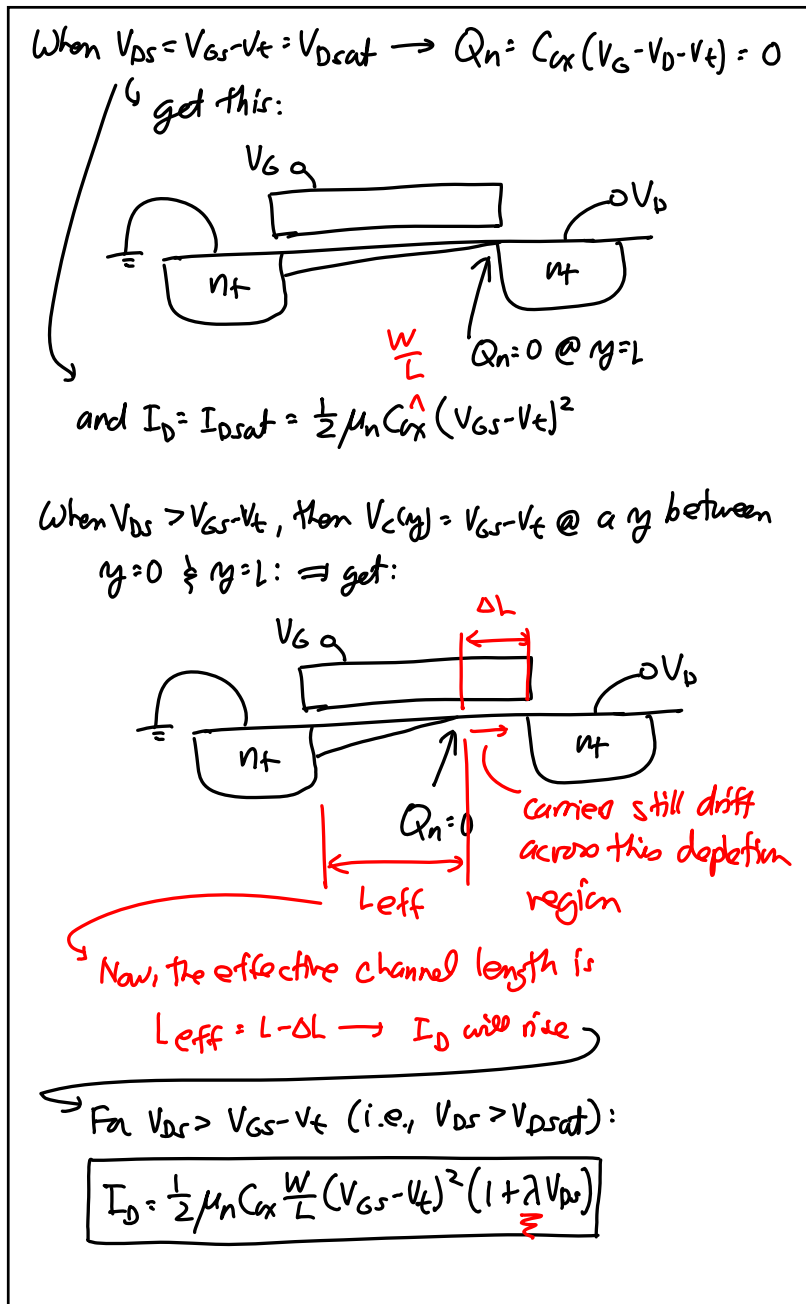 When V_DS = V_GS - V_t = V_Dsat → Q_n = C_ox (V_G - V_D - V_t) = 0
get this:
V_G
V_D
n+
n+
Q_n = 0 @ y = L
W/L
and I_D = I_Dsat = 1/2 μ_n C_ox ^ (V_GS - V_t)²
When V_DS > V_GS - V_t, then V_c(y) = V_GS - V_t @ a y between
y = 0 & y = L: ⇒ get:
ΔL
V_G
V_D
n+
n+
Q_n = 0
carried still drift
across this depletion
region
Leff
Now, the effective channel length is
Leff = L - ΔL → I_D will rise
For V_DS > V_GS - V_t (i.e., V_DS > V_Dsat):
I_D = 1/2 μ_n C_ox W/L (V_GS - V_t)² (1 + λV_DS)